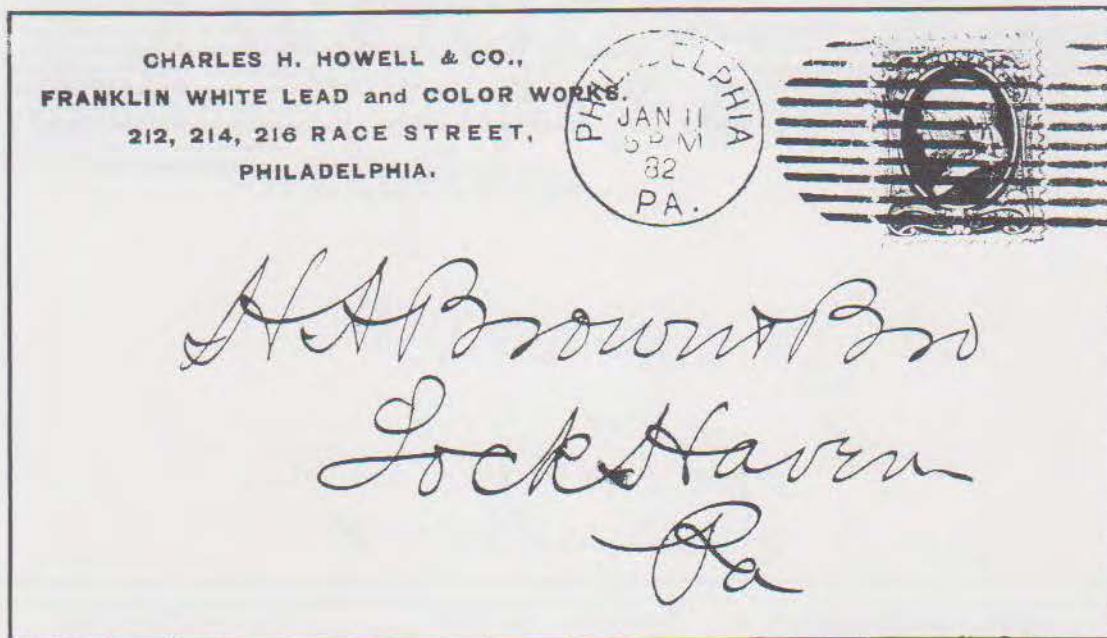 CHARLES H. HOWELL & CO.,
FRANKLIN WHITE LEAD and COLOR WORKS.
212, 214, 216 RACE STREET,
PHILADELPHIA.
PHILADELPHIA
JAN 11
5 PM
82
PA.
H A Brown & Bro
Lock Haven
Pa